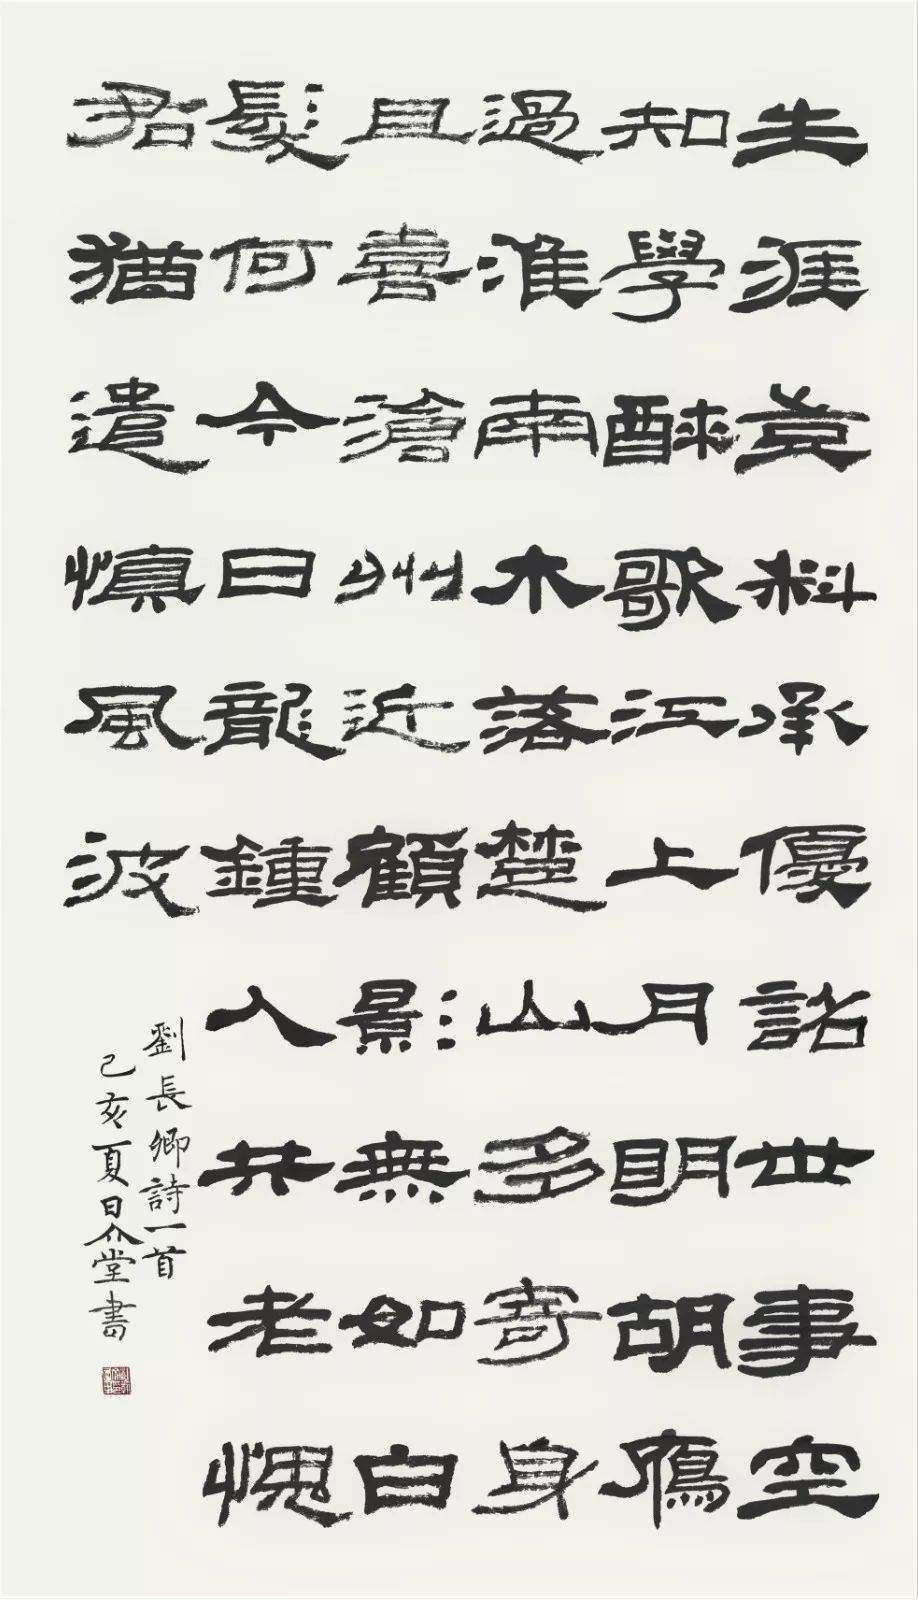 生涯豈料承優詔世事空
知學醉歌江上月明胡鴈
過淮南木落楚山多寄身
且喜滄州近顧影無如白
髮何今日龍鍾人共老愧
君猶遣慎風波
劉長卿詩一首
己亥夏日介堂書